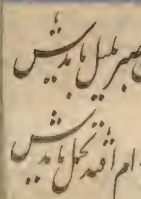 صبر بلبل بایدش
دام افتد تحمل بایدش